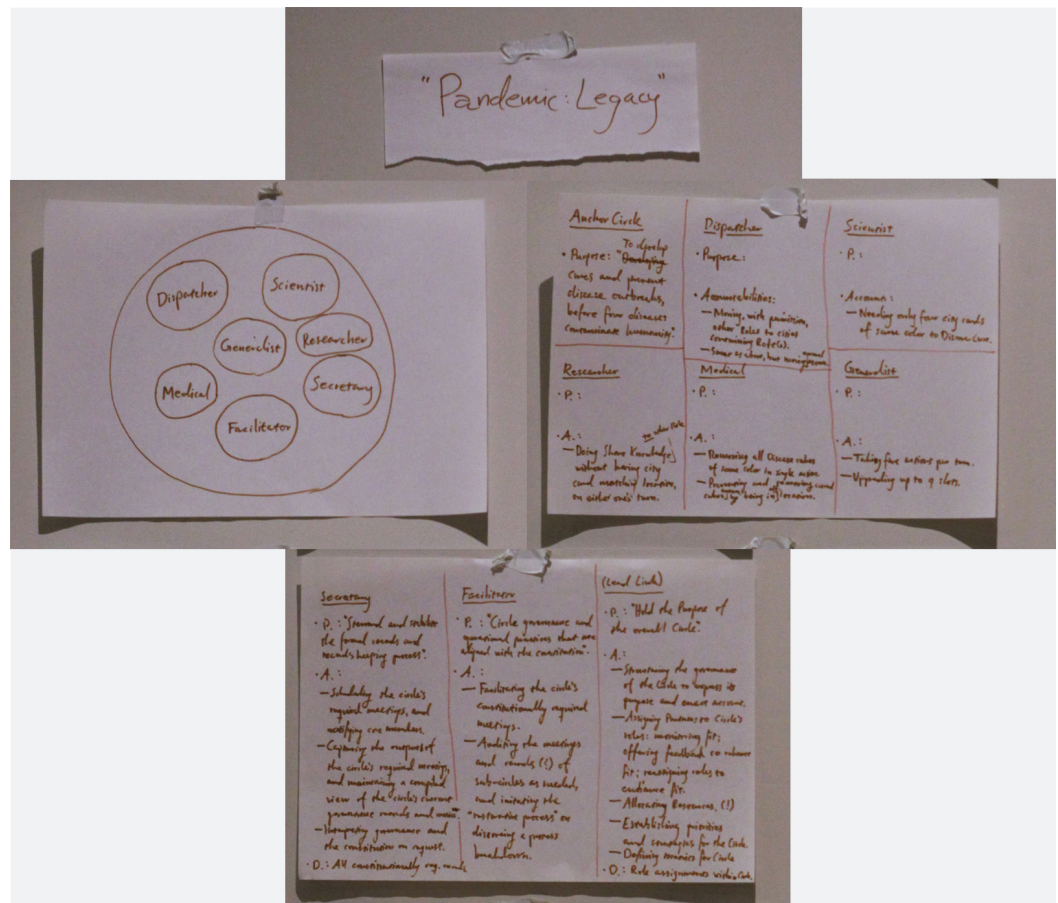 "Pandemic: Legacy"
Dispatcher
Scientist
Generlist
Researcher
Medical
Secretary
Facilitator
Anchor Circle
To develop
• Purpose: "Developing
cures and prevent
disease outbreaks,
before four diseases
contaminate humanity".
Dispatcher
• Purpose:
• Accountabilities:
— Moving, with permission,
other Roles to cities
containing Role(s).
— Same as above, but moving
Scientist
• P.:
• Accounts:
— Needing only four city cards
of same color to Discover Cure.
Researcher
• P.:
• A.:
to other Role
— Doing Share Knowledge
without having city
card matching location,
on either one's turn.
Medical
• P.:
• A.:
— Removing all Disease cubes
of same color in single action
— Preventing and removing cured
cubes by being in locations.
Generalist
• P.:
• A.:
— Taking five actions per turn.
— Upgrading up to 9 slots.
Secretary
• P.: "Steward and stabilize
the formal records and
records keeping process".
• A.:
— Scheduling the circle's
required meetings, and
notifying core members.
— Capturing the outputs of
the circle's required meetings,
and maintaining a compiled
view of the circle's current
governance records and
— Interpreting governance and
the constitution on request.
• D.: All constitutionally req. records
Facilitator
• P.: "Circle governance and
operational practices that are
aligned with the constitution".
• A.:
— Facilitating the circle's
constitutionally required
meetings.
— Auditing the meetings
and records (!) of
sub-circles as needed,
and initiating the
"restorative process" on
discovering a process
breakdown.
(Lead Link)
• P.: "Hold the Purpose of
the overall Circle".
• A.:
— Structuring the governance
of the Circle to express its
purpose and enact accounts.
— Assigning Partners to Circle's
roles: monitoring fit;
offering feedback to enhance
fit; reassigning roles to
continue fit.
— Allocating Resources. (!)
— Establishing priorities
and strategies for the Circle.
— Defining metrics for Circle
• D.: Role assignments within Circle.